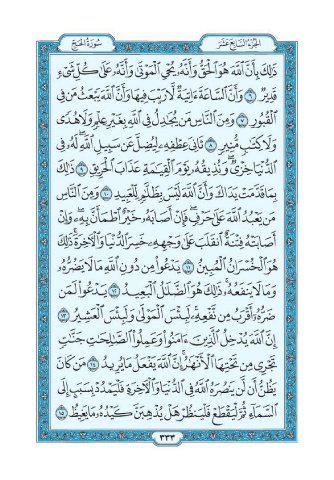 سُورَةُ الحَجِّ
الجُزْءُ السَّابِعَ عَشَرَ
ذَٰلِكَ بِأَنَّ ٱللَّهَ هُوَ ٱلْحَقُّ وَأَنَّهُۥ يُحْىِ ٱلْمَوْتَىٰ وَأَنَّهُۥ عَلَىٰ كُلِّ شَىْءٍ
قَدِيرٌ ٦ وَأَنَّ ٱلسَّاعَةَ ءَاتِيَةٌ لَّا رَيْبَ فِيهَا وَأَنَّ ٱللَّهَ يَبْعَثُ مَن فِى
ٱلْقُبُورِ ٧ وَمِنَ ٱلنَّاسِ مَن يُجَٰدِلُ فِى ٱللَّهِ بِغَيْرِ عِلْمٍ وَلَا هُدًى
وَلَا كِتَٰبٍ مُّنِيرٍ ٨ ثَانِىَ عِطْفِهِۦ لِيُضِلَّ عَن سَبِيلِ ٱللَّهِ ۖ لَهُۥ فِى
ٱلدُّنْيَا خِزْىٌ ۖ وَنُذِيقُهُۥ يَوْمَ ٱلْقِيَٰمَةِ عَذَابَ ٱلْحَرِيقِ ٩ ذَٰلِكَ
بِمَا قَدَّمَتْ يَدَاكَ وَأَنَّ ٱللَّهَ لَيْسَ بِظَلَّٰمٍ لِّلْعَبِيدِ ١٠ وَمِنَ ٱلنَّاسِ
مَن يَعْبُدُ ٱللَّهَ عَلَىٰ حَرْفٍ ۖ فَإِنْ أَصَابَهُۥ خَيْرٌ ٱطْمَأَنَّ بِهِۦ ۖ وَإِنْ
أَصَابَتْهُ فِتْنَةٌ ٱنقَلَبَ عَلَىٰ وَجْهِهِۦ خَسِرَ ٱلدُّنْيَا وَٱلْءَاخِرَةَ ۚ ذَٰلِكَ
هُوَ ٱلْخُسْرَانُ ٱلْمُبِينُ ١١ يَدْعُوا۟ مِن دُونِ ٱللَّهِ مَا لَا يَضُرُّهُۥ
وَمَا لَا يَنفَعُهُۥ ۚ ذَٰلِكَ هُوَ ٱلضَّلَٰلُ ٱلْبَعِيدُ ١٢ يَدْعُوا۟ لَمَن
ضَرُّهُۥٓ أَقْرَبُ مِن نَّفْعِهِۦ ۚ لَبِئْسَ ٱلْمَوْلَىٰ وَلَبِئْسَ ٱلْعَشِيرُ ١٣
إِنَّ ٱللَّهَ يُدْخِلُ ٱلَّذِينَ ءَامَنُوا۟ وَعَمِلُوا۟ ٱلصَّٰلِحَٰتِ جَنَّٰتٍ
تَجْرِى مِن تَحْتِهَا ٱلْأَنْهَٰرُ ۚ إِنَّ ٱللَّهَ يَفْعَلُ مَا يُرِيدُ ١٤ مَن كَانَ
يَظُنُّ أَن لَّن يَنصُرَهُ ٱللَّهُ فِى ٱلدُّنْيَا وَٱلْءَاخِرَةِ فَلْيَمْدُدْ بِسَبَبٍ إِلَى
ٱلسَّمَآءِ ثُمَّ لْيَقْطَعْ فَلْيَنظُرْ هَلْ يُذْهِبَنَّ كَيْدُهُۥ مَا يَغِيظُ ١٥
٣٣٣